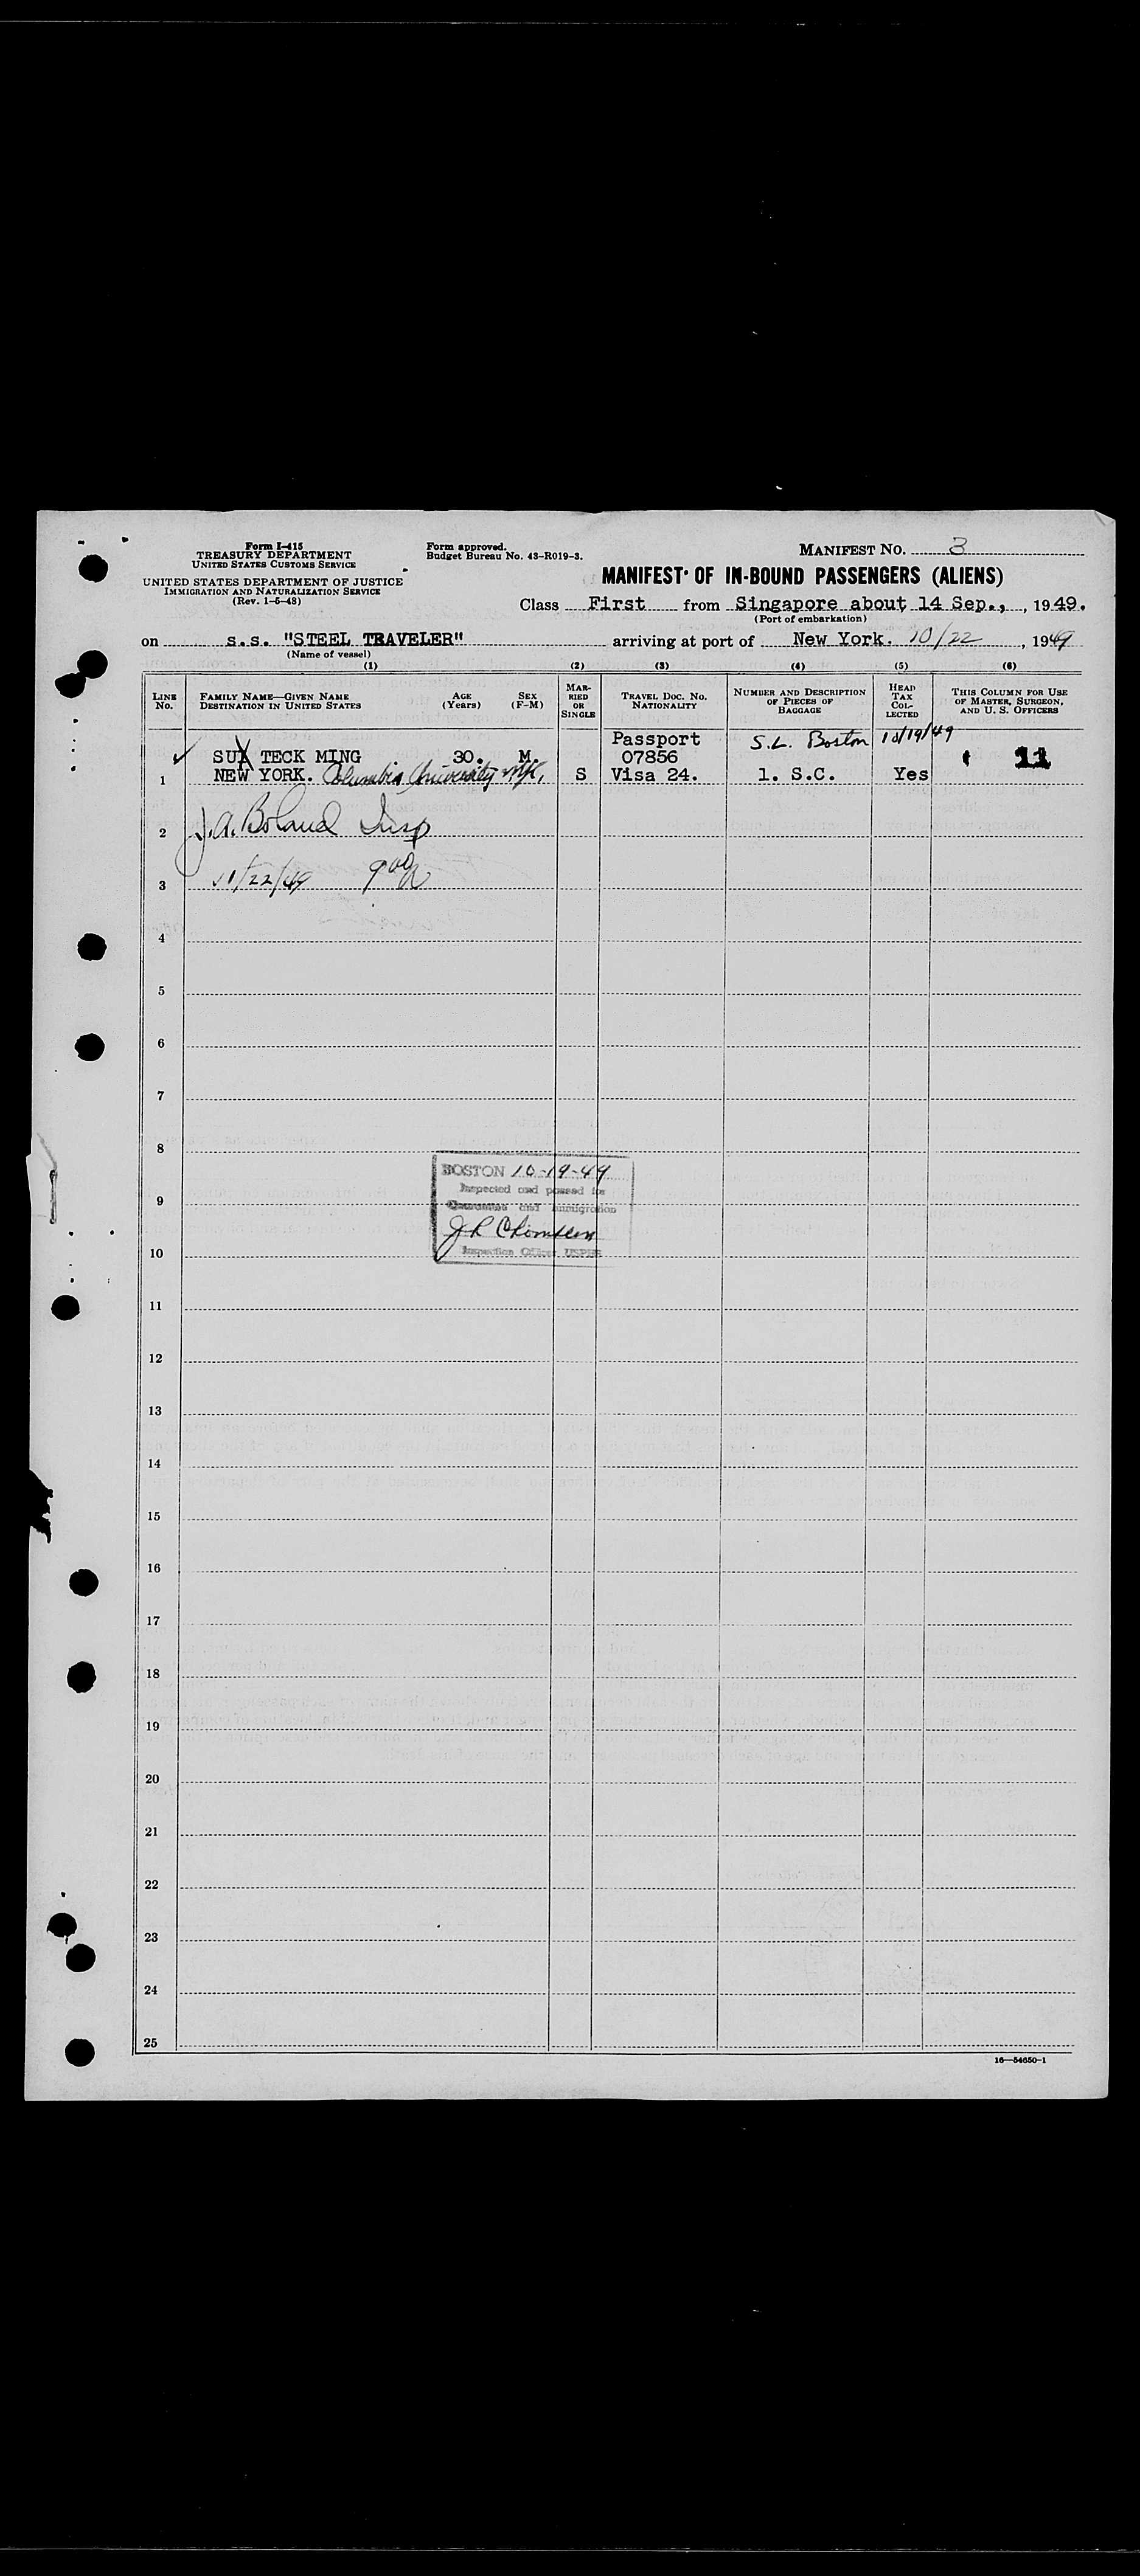 Form I-415
TREASURY DEPARTMENT
UNITED STATES CUSTOMS SERVICE
UNITED STATES DEPARTMENT OF JUSTICE
IMMIGRATION AND NATURALIZATION SERVICE
(Rev. 1-5-48)
Form approved.
Budget Bureau No. 43-R019-3.
MANIFEST No. 3
MANIFEST OF IN-BOUND PASSENGERS (ALIENS)
Class First from Singapore about 14 Sep., , 1949.
(Port of embarkation)
on s.s. "STEEL TRAVELER" arriving at port of New York. 10/22, 1949
(Name of vessel)
(1) (2) (3) (4) (5) (6)
LINE No.
FAMILY NAME—GIVEN NAME
DESTINATION IN UNITED STATES
AGE (Years)
SEX (F-M)
MARRIED OR SINGLE
TRAVEL DOC. NO.
NATIONALITY
NUMBER AND DESCRIPTION OF PIECES OF BAGGAGE
HEAD TAX COLLECTED
THIS COLUMN FOR USE OF MASTER, SURGEON, AND U. S. OFFICERS
Passport S.L. Boston 10/19/49
SUX TECK MING 30. M. 07856 11
1 NEW YORK. Columbia University S Visa 24. 1. S.C. Yes
2 J.A. Boland Insp
3 11/22/49 9 00
4
5
6
7
8
BOSTON 10-19-49
Inspected and passed for
9
Quarantine and Immigration
10
Inspection Officer USPHS
11
12
13
14
15
16
17
18
19
20
21
22
23
24
25
16—54650-1